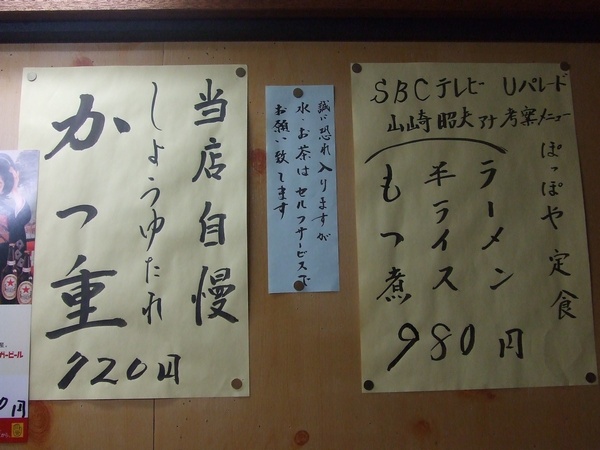 当店自慢
しょうゆたれ
かつ重
920円
誠に恐れ入りますが
水・お茶はセルフサービスで
お願い致してます
SBCテレビー Uパレード
山崎昭夫アナ考案メニュー
ぽっぽや定食
ラーメン
半ライス
もつ煮
980円
0円